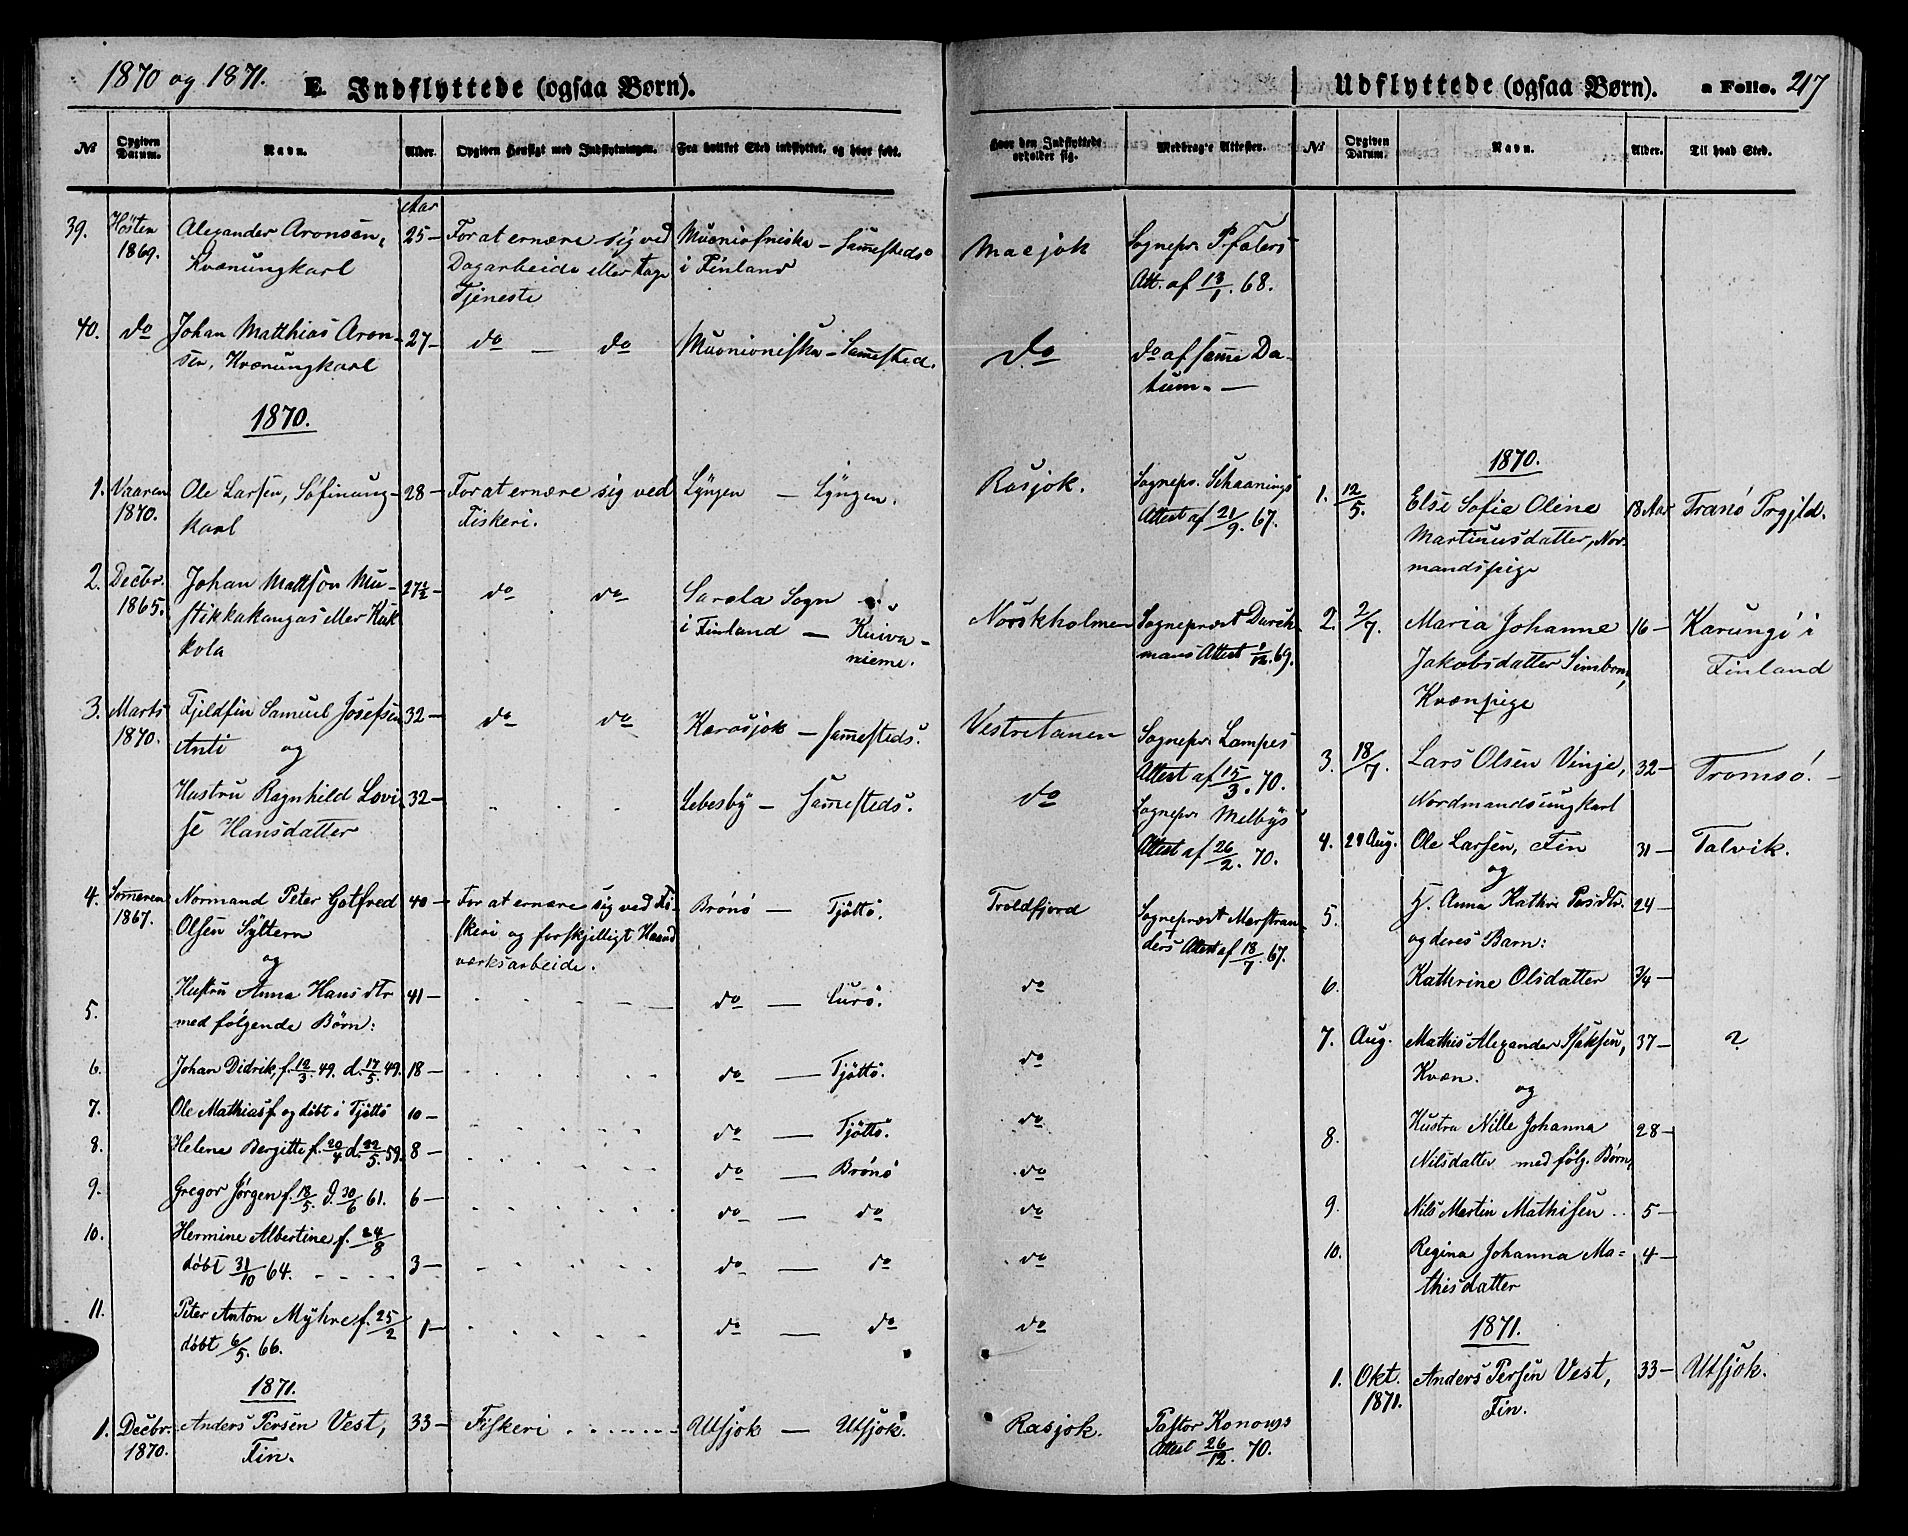 1870 og 1871.
E. Indflyttede (ogsaa Børn).
№
Opgiven Datum.
Navn.
Alder.
Opgiven Hensigt med Indflytningen.
Fra hvilket Sted indflyttet, og hvor født.
Aar
39. Høsten Alexander Aronsen, 25- For at ernære sig ved Muoniofniska - Samesteds
1869. Kvænungkarl Dagarbeide eller tage i Finland
Tjeneste
40. do Johan Matthias Aron- 27- do — do Muonioniska - Samested.
sen, Kvænungkarl
1870.
1. Vaaren Ole Larsen, Søfinung- 28- For at ernære sig ved Lyngen — Lyngen.
1870. karl Fiskeri.
2. Decbr. Johan Mattson Mu- 27½- do do Sarola Sogn
1865. stikkakangas eller Kuk i Finland — Kuiva-
kola nieme.
3. Marts Fjeldfin Samuel Josefsen 32- do do Karasjok - samesteds.
1870. Anti og
Hustru Ragnhild Lovi 32- Lebesby - samesteds.
se Hansdatter
4. Sommeren Normand Peter Gotfred 40- For at ernære sig ved Fi- Brønø — Tjøttø.
1867. Olsen Syltern skeri og forskjelligt Haand
og værksarbeide.
5. Hustru Anna Hansdtr 41- do — Lurø.
med følgende Børn:
6. Johan Didrik, f. 12/3. 49. d. 17/5. 49. 18- do — Tjøttø.
7. Ole Mathias f. og døbt i Tjøttø 10- do — Tjøttø.
8. Helene Bergitte f. 20/4 d. 22/5. 59. 8- do — Brønø
9. Gregor Jørgen f. 18/5. d. 30/6 61. 6- do — do
10. Hermine Albertine f. 24/8
døbt 31/10 64. 3- do — do
11. Peter Anton Myhre f. 25/2 1- do — do
døbt 6/5. 66.
1871.
1. Decbr. Anders Persen Vest, 33- Fiskeri Utsjok — Utsjok.
1870. Fin.
Hvor den Indflyttede opholder sig.
Medbragte Attester.
Masjok Sognepr. P. Falers
Att. af 13/1. 68.
do do af same Da-
tum. —
Rasjok. Sognepr. Schaanings
Attest af 21/9. 67.
Norskholmen Sognepræst Durch-
mans Attest 1/12. 69.
Vestretanen Sognepr. Lampes
Attest af 15/3. 70.
do Sognepr. Melbys
Attest af 26/2. 70.
Troldfjord Sognepræst Marstran-
ders Attest af 18/7. 67.
do
do
do
do
do
do
do
Rasjok. Pastor Konows
Attest 26/12. 70.
Udflyttede (ogsaa Børn).
a Folio. 217
№
Opgiven Datum.
Navn.
Alder.
Til hvad Sted.
1870.
1. 12/5. Else Sofie Oline 18 Aar Tranø Prgjld.
Martinusdatter, Nor-
mandspige
2. 2/7. Maria Johanne 16- Karungi i
Jakobsdatter Simbon, Finland
Kvænpige
3. 18/7. Lars Olsen Vinje, 32- Tromsø.
Nordmandsungkarl
4. 29 Aug. Ole Larsen, Fin 31- Talvik.
og
5. H. Anna Kathr. Persdtr. 24-
og deres Barn:
6. Kathrine Olsdatter 3/4-
7. Aug. Mathis Alexander Isaksen, 37- ?
Kvæn.
og
8. Hustru Nille Johanna 28-
Nilsdatter med følg. Børn,
9. Nils Martin Mathisen 5-
10. Regina Johanna Ma- 4-
thisdatter
1871.
1. Okt. Anders Persen Vest, 33- Utsjok.
1871. Fin.